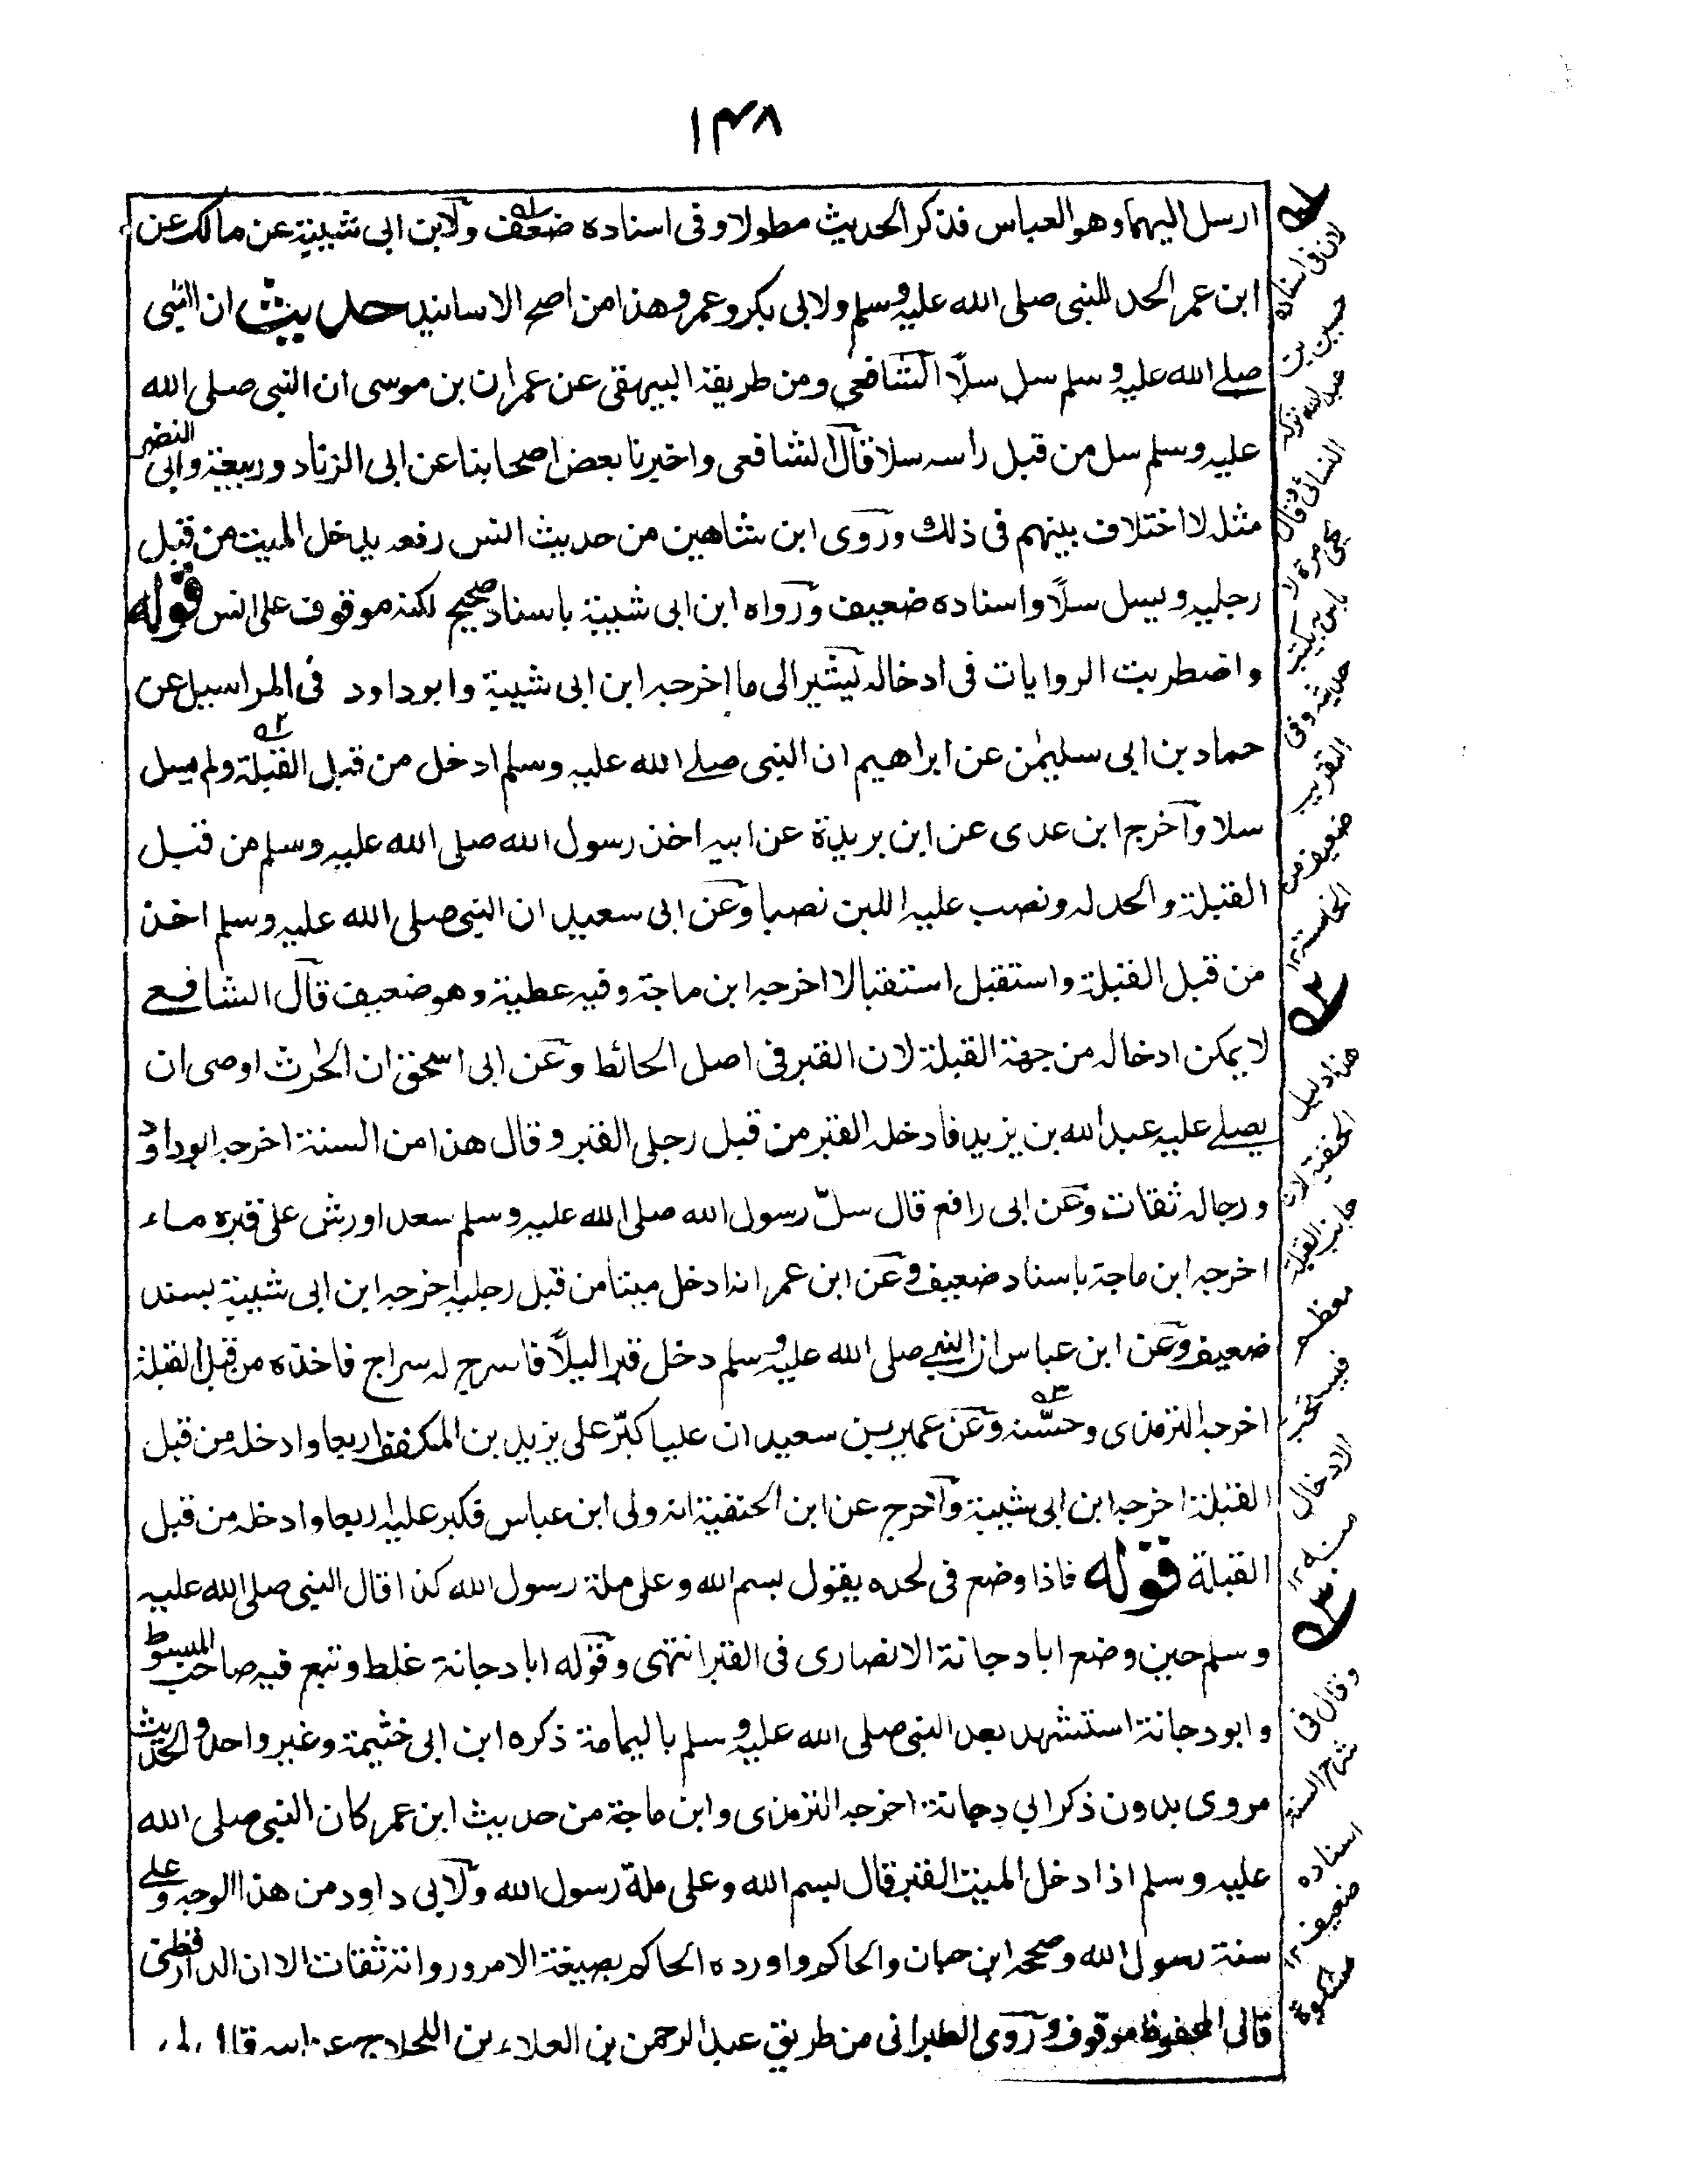 ۱۴۸
ارسل اليهما وهو العباس فذكر الحديث مطولا وفى اسناده ضعف ولابن ابى شيبة عن مالك عن
ابن عمر الحد للنبى صلى الله عليه وسلم ولابى بكر وعمر وهذا من اصح الاسانيد حديث ان النبى
صلے الله عليه وسلم سل سلًّا الشافعي ومن طريقة البيهقى عن عمران بن موسى ان النبى صلى الله
عليه وسلم سل من قبل راسه سلا قال الشافعى واخبرنا بعض اصحابنا عن ابى الزناد وربيعة وابى النضر
مثله لا اختلاف بينهم فى ذلك وروى ابن شاهين من حديث انس رفعه يدخل الميت من قبل
رجليه ويسل سلًا واسناده ضعيف ورواه ابن ابى شيبة باسناد صحيح لكنه موقوف على انس قوله
واضطربت الروايات فى ادخاله يشير الى ما اخرجه ابن ابى شيبة وابوداود فى المراسيل عن
حماد بن ابى سليمٰن عن ابراهيم ان النبى صلے الله عليه وسلم ادخل من قبل القبلة ولم يسل
سلا وآخرج ابن عدى عن ابن بريدة عن ابيه اخذ رسول الله صلى الله عليه وسلم من قبل
القبلة والحد له ونصب عليه اللبن نصبا وعن ابى سعيد ان النبى صلى الله عليه وسلم اخذ
من قبل القبلة واستقبل استقبالا اخرجه ابن ماجة وفيه عطية وهو ضعيف قال الشافعے
لا يمكن ادخاله من جهة القبلة لان القبر فى اصل الحائط وعن ابى اسحٰق ان الحٰرث اوصى ان
يصلے عليه عبد الله بن يزيد فادخله القبر من قبل رجلى القبر وقال هذا من السنة اخرجه ابوداود
ورجاله ثقات وعن ابى رافع قال سلّ رسول الله صلى الله عليه وسلم سعدا ورش على قبره ماء
اخرجه ابن ماجة باسناد ضعيف وعن ابن عمر انه ادخل ميتا من قبل رجليه اخرجه ابن ابى شيبة بسند
ضعيف وعن ابن عباس ان النبے صلى الله عليه وسلم دخل قبرا ليلًا فاسرج له سراج فاخذه من قبل القبلة
اخرجه الترمذى وحسّنه وعن عمير بن سعيد ان عليا كبّر على يزيد بن المكفف اربعا وادخله من قبل
القبلة اخرجه ابن ابى شيبة وآخرج عن ابن الحنفية انه ولى ابن عباس فكبر عليه اربعا وادخله من قبل
القبلة قوله فاذا وضع فى لحده يقول بسم الله وعلى ملة رسول الله كذا قال النبى صلى الله عليه
وسلم حين وضع ابا دجانة الانصارى فى القبر انتهى وقوله ابا دجانة غلط وتبع فيه صاحب المبسوط
وابو دجانة استشهد بعد النبى صلى الله عليه وسلم باليمامة ذكره ابن ابى خثيمة وغير واحد والحديث
مروى بدون ذكر ابي دجانة اخرجه الترمذى وابن ماجة من حديث ابن عمر كان النبى صلى الله
عليه وسلم اذا دخل الميت القبر قال بسم الله وعلى ملة رسول الله ولابى داود من هذا الوجه وعلے
سنة رسول الله وصححه ابن حبان والحاكم واورده الحاكم بصيغة الامر ورواته ثقات الا ان الدارقطنى
قال المحفوظ موقوف وروى الطبرانى من طريق عبد الرحمن بن العلاء بن اللجلاج عن ابيه قال لى
لان فى اسناده
حسين بن
عبد الله تركه
النسائى وقال
يحيى مرة لا
باس به يكتب
حديثه وفى
التقريب
ضعيف من
الخامسة ۱۲
۲
هذا دليل
الحنفية لان
جانب القبلة
معظم
فيستحب
الادخال
منه ۱۲
۳
وقال فى
شرح السنة
اسناده
ضعيف ۱۲
مشكوة